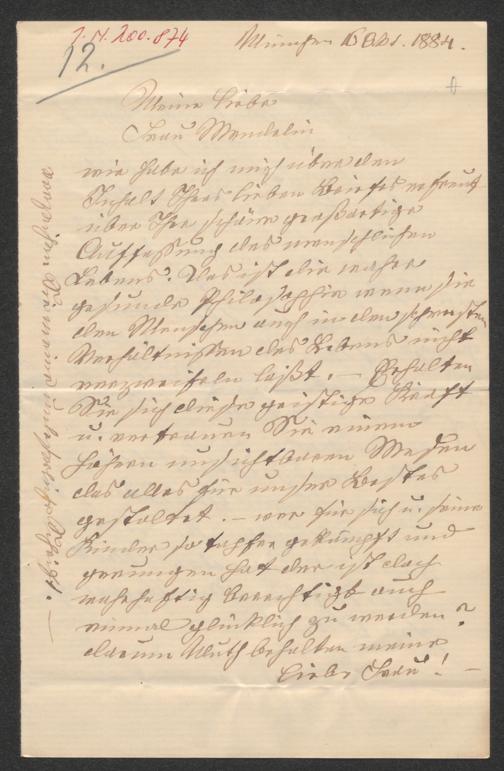 J.N. 200.874
12.
München 16 Okt. 1884.
Meine liebe
Frau Wendelin
wie habe ich mich über den
Inhalt Ihres lieben Briefes erfreut
über Ihre schöne großartige
Auffassung des menschlichen
Lebens. Das ist die wahre
gesunde Philosophie wenn sie
den Menschen auch in den schwersten
Verhältnissen des Lebens nicht
verzweifeln läßt. — Erhalten
Sie sich diese geistige Kraft
u. vertrauen Sie einem
höhern unsichtbaren Wesen
das alles für unser Bestes
gestaltet. — wer für sich u. seine
Kinder so tapfer gekämpft und
gerungen hat der ist doch
wahrhaftig berechtigt auch
einmal glücklich zu werden?
darum Muth behalten meine
liebe Frau! —